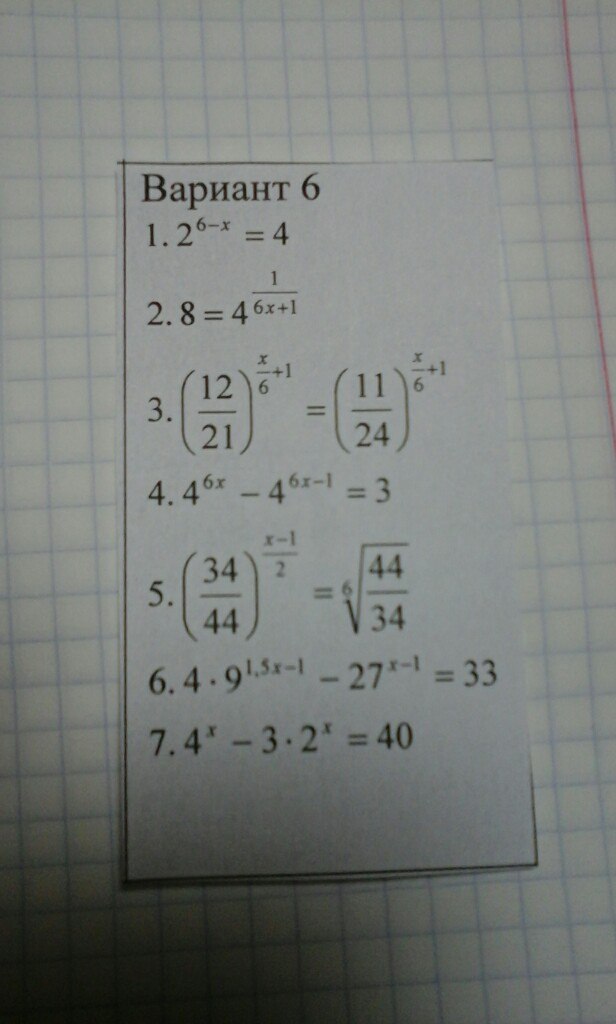 Вариант 6
1. 2^{6−x} = 4
2. 8 = 4^{\frac{1}{6x+1}}
3. \left(\frac{12}{21}\right)^{\frac{x}{6}+1} = \left(\frac{11}{24}\right)^{\frac{x}{6}+1}
4. 4^{6x} − 4^{6x−1} = 3
5. \left(\frac{34}{44}\right)^{\frac{x−1}{2}} = \sqrt[6]{\frac{44}{34}}
6. 4 · 9^{1,5x−1} − 27^{x−1} = 33
7. 4^{x} − 3 · 2^{x} = 40